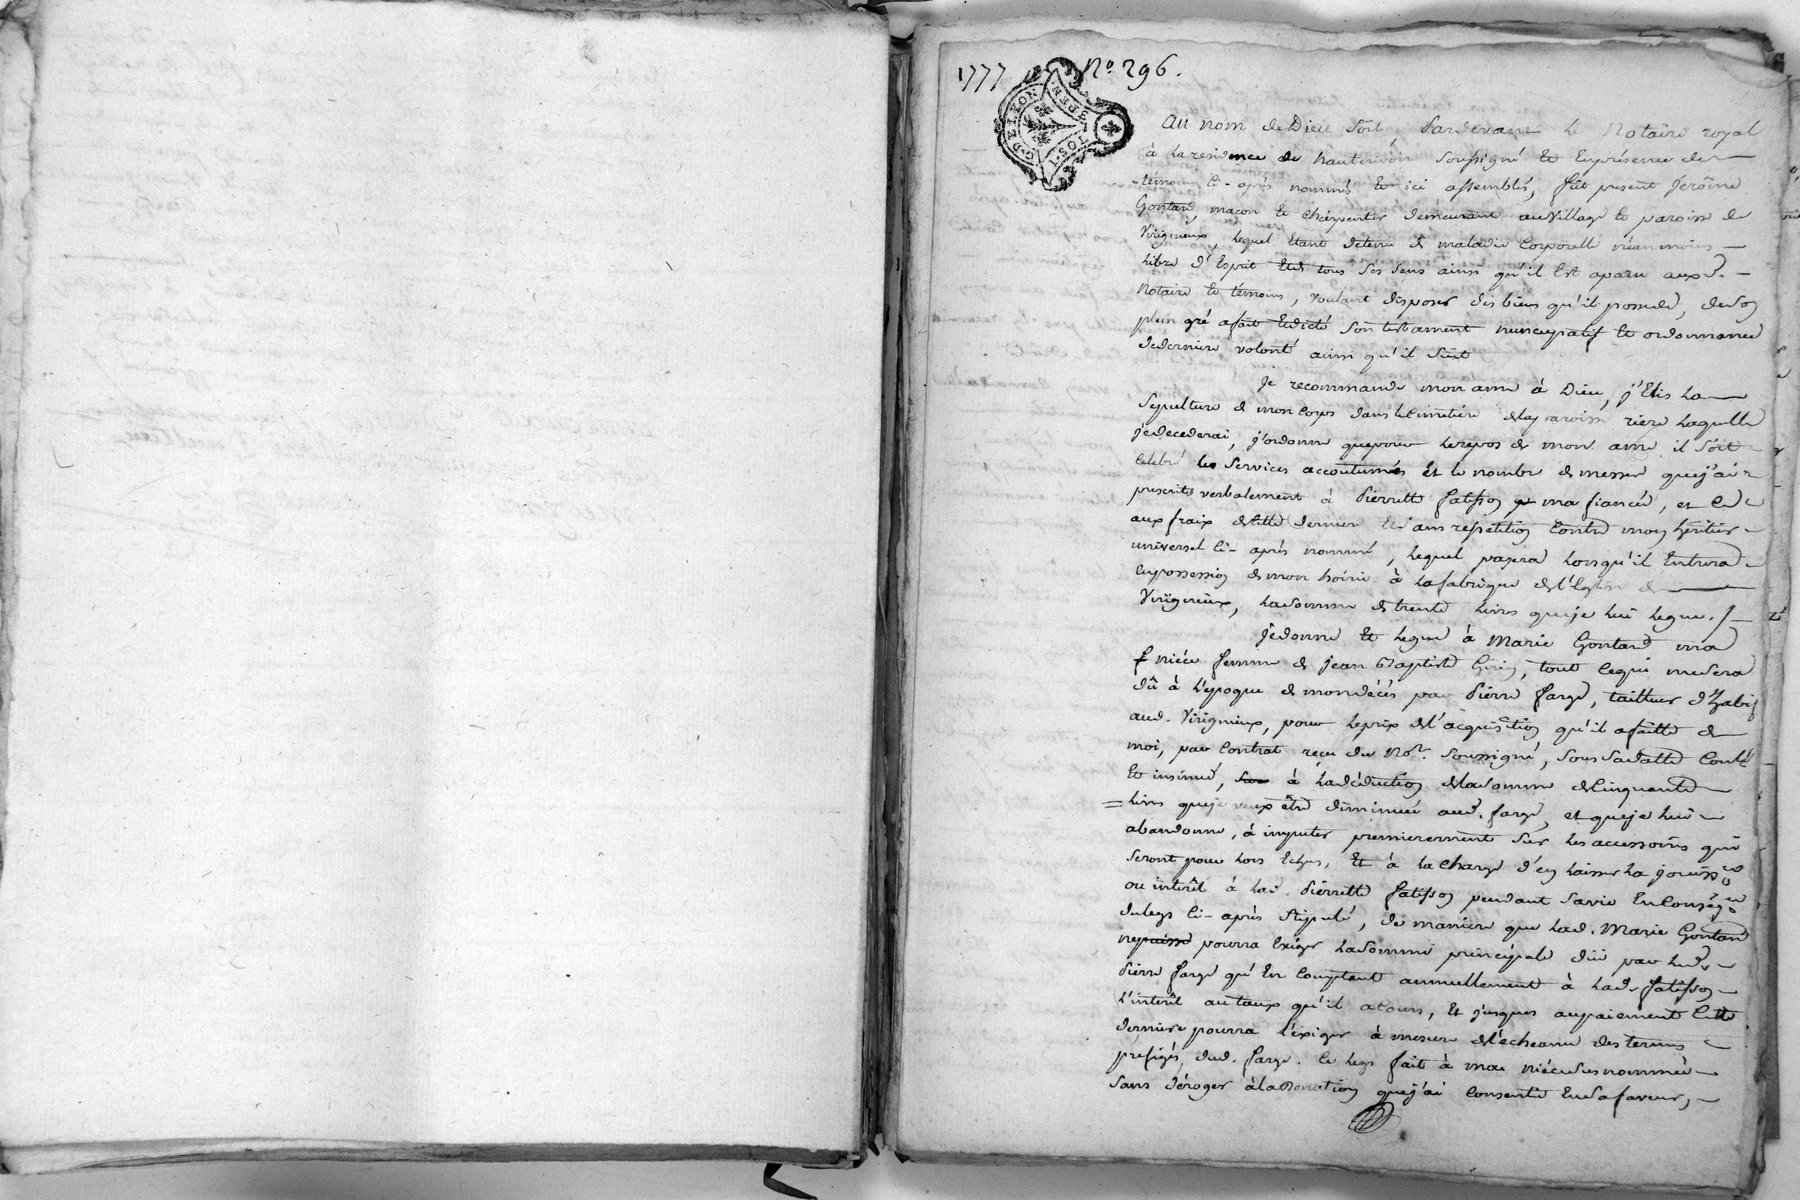 1777 No. 296.
G. DE LYON
SOT
DEN.
Au nom de Dieu soit Pardevant le Notaire royal
à la residence de hauterivoir soussigné et En presence des
témoins ci-après nommés et ici assemblés, fût present Jerôme
Gontard, maçon et charpentier demeurant au Village et paroisse de
Virigneux, lequel étant detenu de maladie Corporelle néanmoins
libre d'Esprit Et de tous ses sens ainsi qu'il Est aparu auxd.
Notaire et témoins, voulant disposer des biens qu'il possede, de son
plein gré a fait Et dicté son testament nuncupatif et ordonnance
de derniere volonté ainsi qu'il suit
Je recommande mon ame à Dieu, j'Elis la
sepulture de mon Corps dans le Cimetiere de la paroisse riere laquelle
je decederai, j'ordonne que pour le repos de mon ame il soit
celebré les services accoutumés et le nombre de messes que j'ai
prescrit verbalement à Pierrette fatisson ma fiancée, et ce
aux fraix de cette derniere Et sans repetition Contre mon héritier
universel ci-après nommé, lequel payera lorsqu'il Entrera
En possession de mon hoirie à la fabrique de l'Eglise de
Virigneux, la somme de trente livres que je lui legue.
Je donne et legue à Marie Gontard ma
niéce femme de jean Baptiste, tout ce qui me sera
dû à l'époque de mon décès par Pierre farge, tailleur d'habit
aud. Virigneux, pour le prix de l'acquisition qu'il a faitte de
moi, par Contrat recu du Nore. soussigné, sous sa datte Contlé
Et insinué, à la déduction de la somme de Cinquante
livres que je veux être diminué aud. farge, et que je lui
abandonne, à imputer premierement sur les accessoires qui
seront pour lors Echus, Et à la charge d'en laisser la jouissce
ou interêt à lad. Pierrette fatisson pendant sa vie En Conséqce
du legs ci-après stipulé, de maniere que lad. Marie Gontard
ne pourra Exiger la somme principale düe par led.
Pierre farge qu'En Comptant annuellement à lad. fatisson
l'interêt au taux qu'il a Cours, Et jusques au paiement Cette
derniere pourra l'éxiger à mesure de l'écheance des termes
prefigés, dud. farge. le legs fait à ma niéce susnommée
sans déroger à la donation que j'ai Consentie En sa faveur,